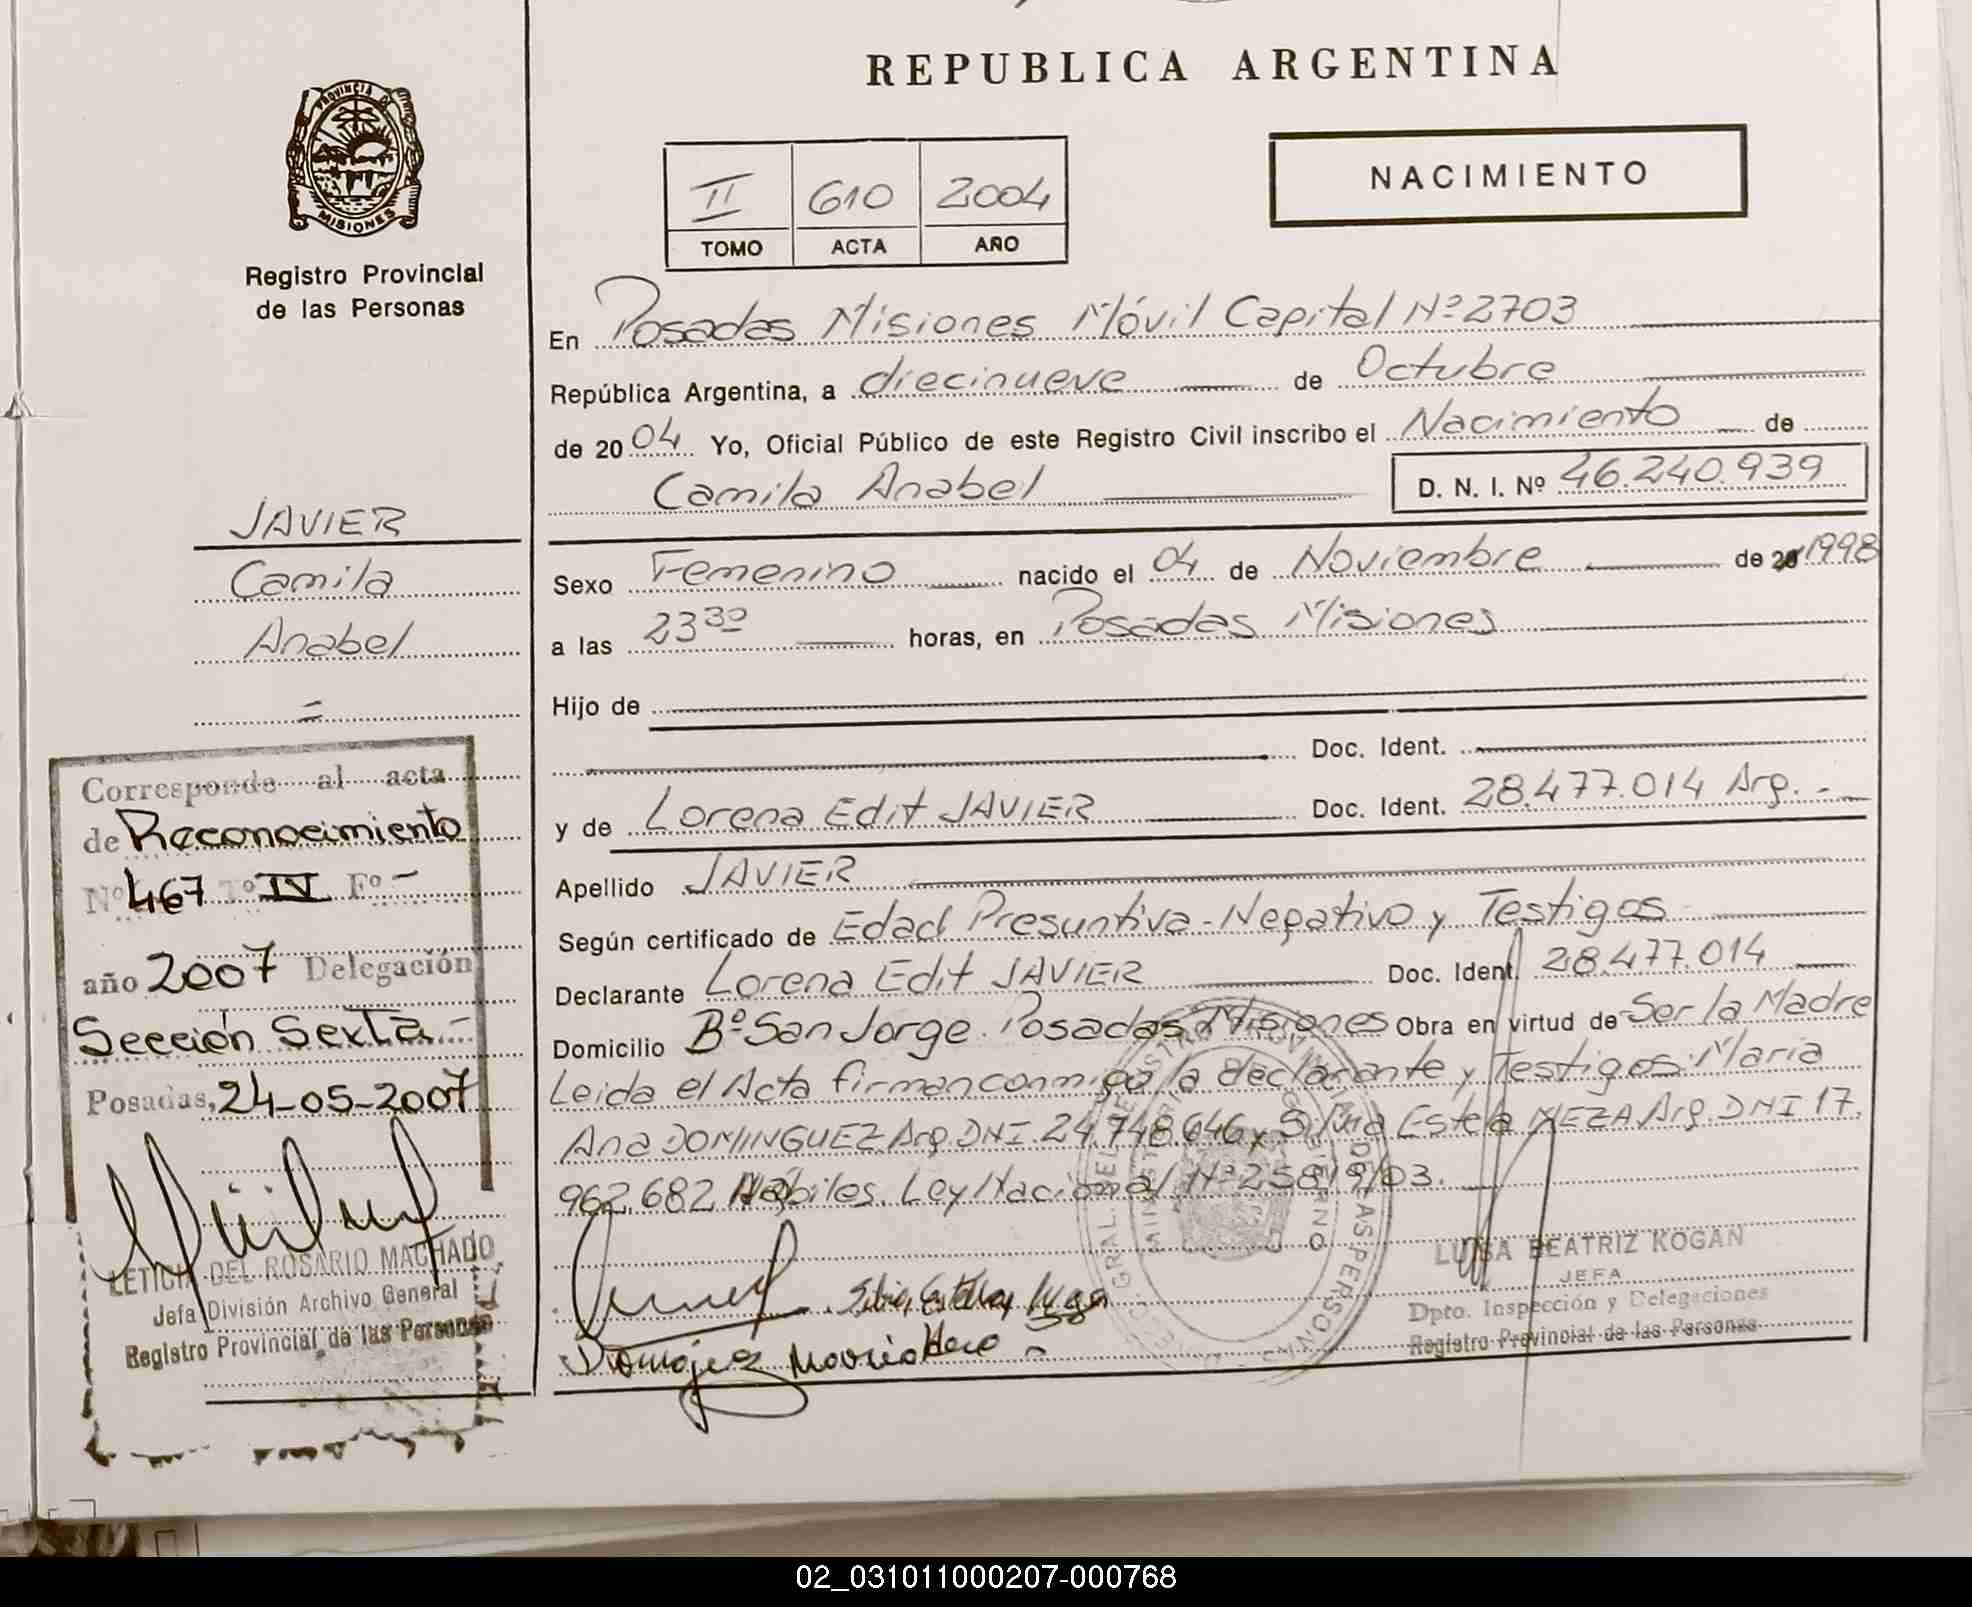 REPUBLICA ARGENTINA
PROVINCIA DE
MISIONES
Registro Provincial
de las Personas
II 610 2004
TOMO ACTA AÑO
NACIMIENTO
En Posadas Misiones Móvil Capital Nº 2703
República Argentina, a diecinueve de Octubre
de 2004 Yo, Oficial Público de este Registro Civil inscribo el Nacimiento de
Camila Anabel D. N. I. Nº 46.240.939
Sexo Femenino nacido el 04 de Noviembre de 20 1998
a las 23 30 horas, en Posadas Misiones
Hijo de
Doc. Ident.
y de Lorena Edit JAVIER Doc. Ident. 28.477.014 Arg.-
Apellido JAVIER
Según certificado de Edad Presuntiva-Negativo y Testigos
Declarante Lorena Edit JAVIER Doc. Ident. 28.477.014
Domicilio Bº San Jorge. Posadas Misiones Obra en virtud de Ser la Madre
Leida el Acta firman conmigo la declarante y Testigos: Maria
Ana DOMINGUEZ Arg. DNI. 24.748.646 y Silvia Estela MEZA Arg. DNI 17.
962.682 Hábiles. Ley Nacional Nº 25819/03.
JAVIER
Camila
Anabel
=
Corresponde al acta
de Reconocimiento
Nº 467 Tº IV Fº -
año 2007 Delegación
Sección Sexta.-
Posadas, 24-05-2007
LETICIA DEL ROSARIO MACHADO
Jefa División Archivo General
Registro Provincial de las Personas
LUISA BEATRIZ KOGAN
JEFA
Dpto. Inspección y Delegaciones
Registro Provincial de las Personas
02_031011000207-000768